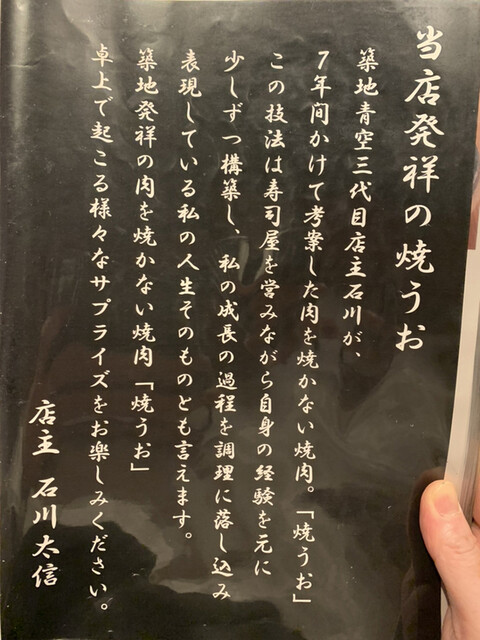 当店発祥の焼うお
築地青空三代目店主石川が、
7年間かけて考案した肉を焼かない焼肉。「焼うお」
この技法は寿司屋を営みながら自身の経験を元に
少しずつ構築し、私の成長の過程を調理に落し込み
表現している私の人生そのものとも言えます。
築地発祥の肉を焼かない焼肉「焼うお」
卓上で起こる様々なサプライズをお楽しみください。
店主 石川太信